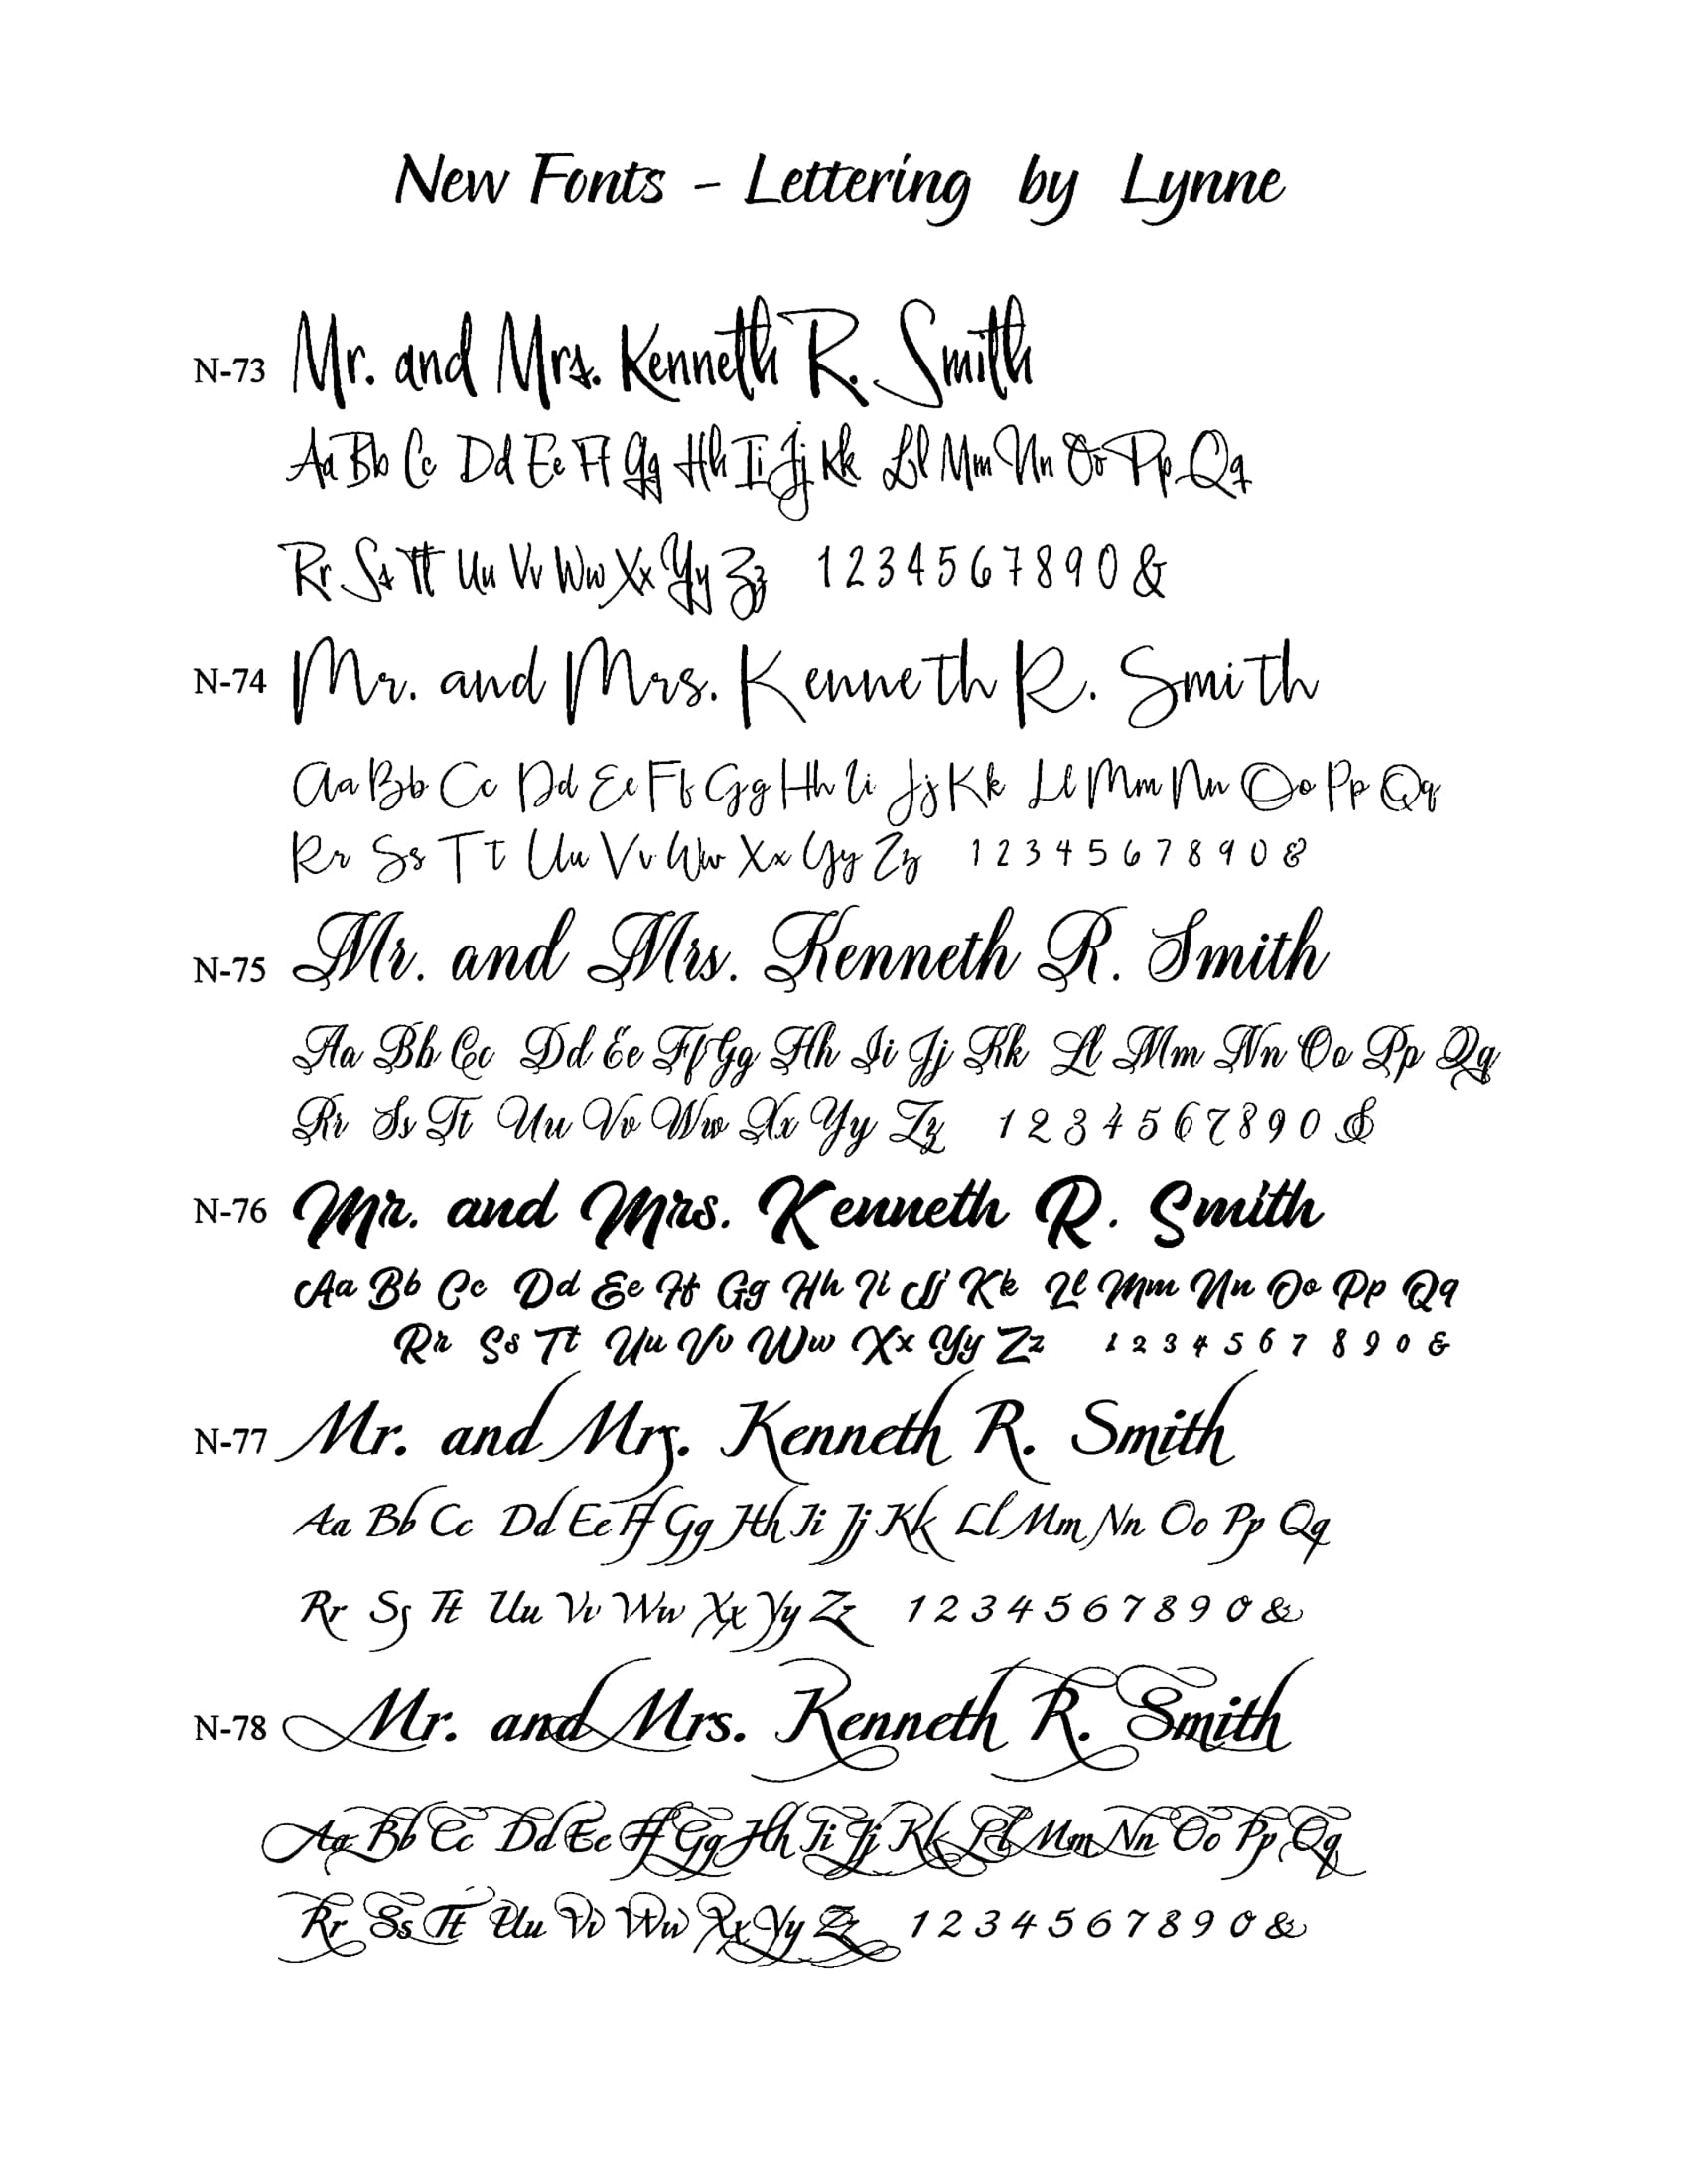 New Fonts - Lettering by Lynne
N-73 Mr. and Mrs. Kenneth R. Smith
Aa Bb Cc Dd Ee Ff Gg Hh Ii Jj Kk Ll Mm Nn Oo Pp Qq
Rr Ss Tt Uu Vv Ww Xx Yy Zz 1 2 3 4 5 6 7 8 9 0 &
N-74 Mr. and Mrs. Kenneth R. Smith
Aa Bb Cc Dd Ee Ff Gg Hh Ii Jj Kk Ll Mm Nn Oo Pp Qq
Rr Ss Tt Uu Vv Ww Xx Yy Zz 1 2 3 4 5 6 7 8 9 0 &
N-75 Mr. and Mrs. Kenneth R. Smith
Aa Bb Cc Dd Ee Ff Gg Hh Ii Jj Kk Ll Mm Nn Oo Pp Qq
Rr Ss Tt Uu Vv Ww Xx Yy Zz 1 2 3 4 5 6 7 8 9 0 &
N-76 Mr. and Mrs. Kenneth R. Smith
Aa Bb Cc Dd Ee Ff Gg Hh Ii Jj Kk Ll Mm Nn Oo Pp Qq
Rr Ss Tt Uu Vv Ww Xx Yy Zz 1 2 3 4 5 6 7 8 9 0 &
N-77 Mr. and Mrs. Kenneth R. Smith
Aa Bb Cc Dd Ee Ff Gg Hh Ii Jj Kk Ll Mm Nn Oo Pp Qq
Rr Ss Tt Uu Vv Ww Xx Yy Zz 1 2 3 4 5 6 7 8 9 0 &
N-78 Mr. and Mrs. Kenneth R. Smith
Aa Bb Cc Dd Ee Ff Gg Hh Ii Jj Kk Ll Mm Nn Oo Pp Qq
Rr Ss Tt Uu Vv Ww Xx Yy Zz 1 2 3 4 5 6 7 8 9 0 &